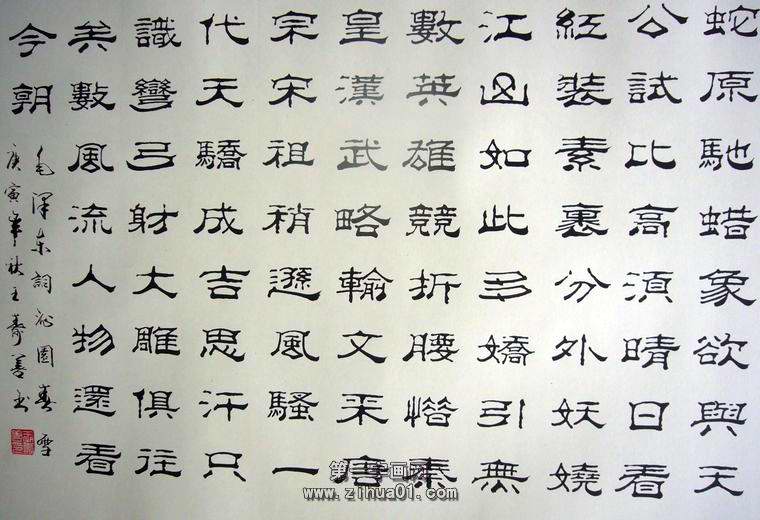 蛇原馳蜡象欲與天
公試比高須晴日看
紅裝素裹分外妖嬈
江山如此多嬌引無
數英雄競折腰惜秦
皇漢武略輸文采唐
宗宋祖稍遜風騷一
代天驕成吉思汗只
識彎弓射大雕俱往
矣數風流人物還看
今朝
毛澤东詞沁園春雪
庚寅年秋王壽善书
www.zihua01.com